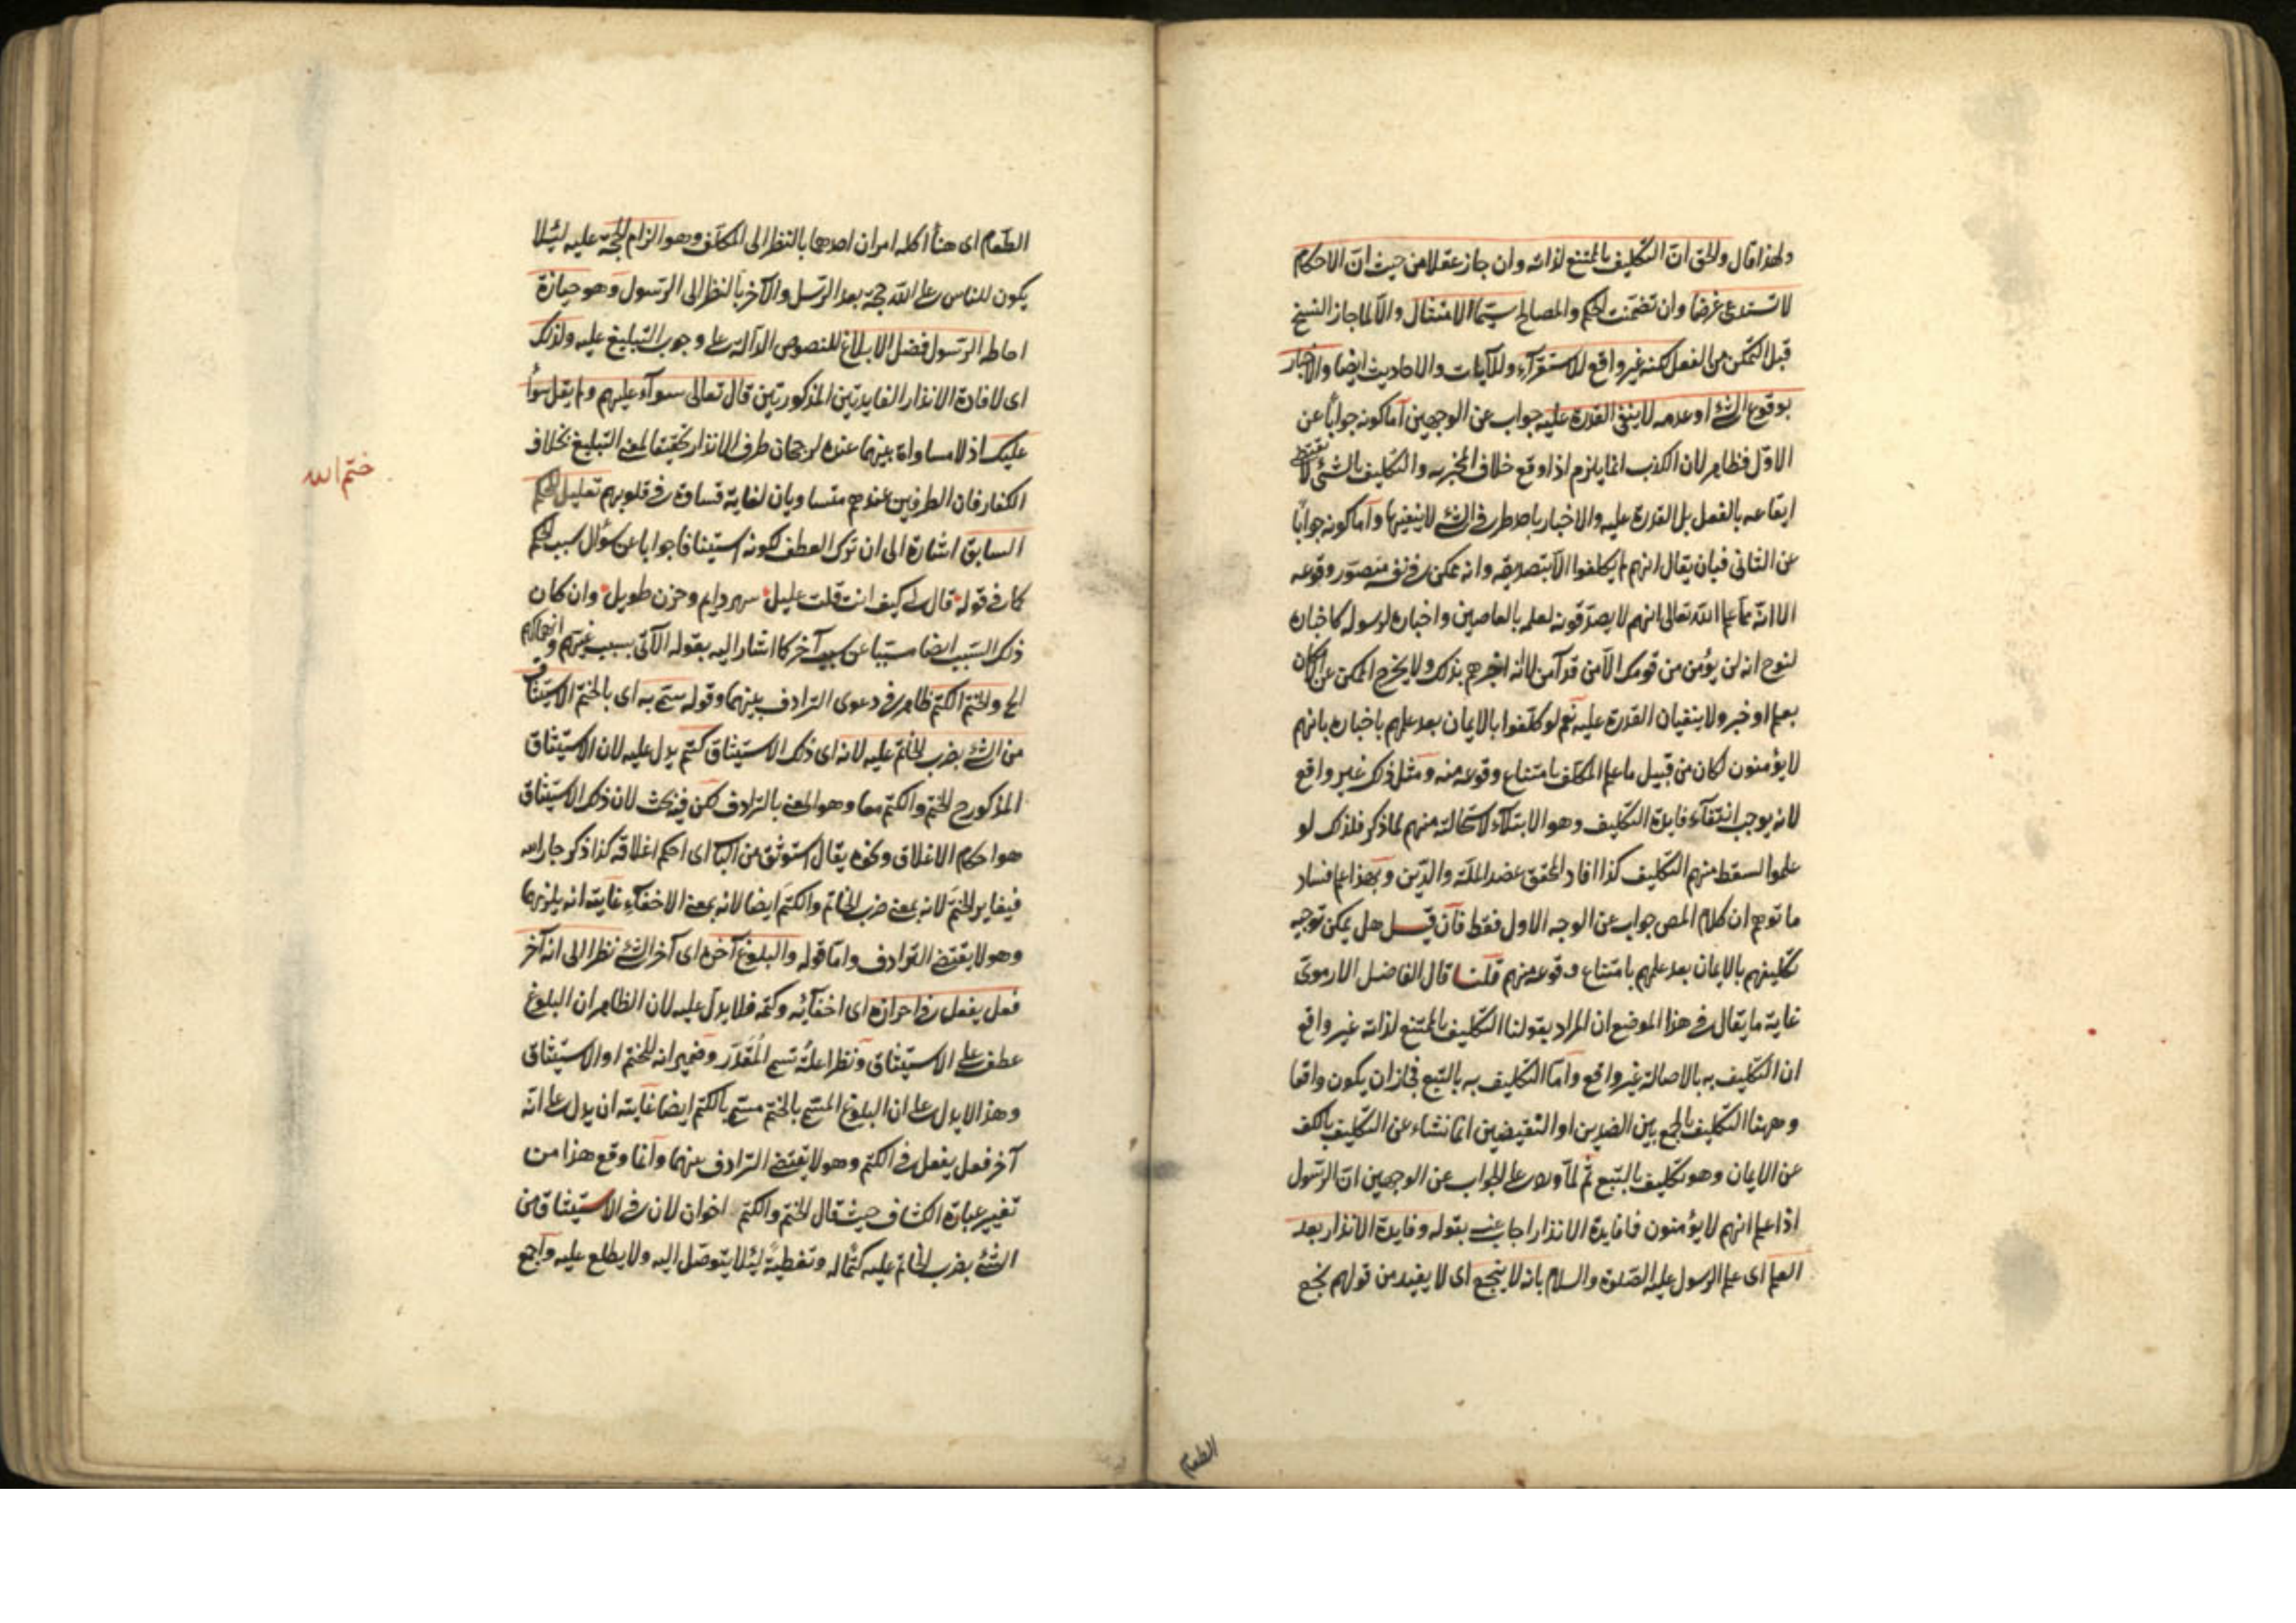 ولهذا قال والحق ان التكليف بالممتنع لذاته وان جاز عقلا من حيث ان الاحكام
لا تستدعى غرضا وان تضمنت الحكم والمصالح سيما الامتثال والا لما جاز النسخ
قبل التمكن من الفعل لكنه غير واقع للاستقرآء وللآيات والاحاديث ايضا والاخبار
بوقوع الشئ او عدمه لا ينفى القدرة عليه جواب عن الوجهين اما كونه جوابا عن
الاول فظاهر لان الكذب انما يلزم اذا وقع خلاف المخبر به والتكليف بالشئ لا يقتضى
ايقاعه بالفعل بل القدرة عليه والاخبار باحد طرفى الشئ لا ينفيها واما كونه جوابا
عن الثانى فبان يقال انهم لم يكلفوا الا بتصديقه وانه ممكن فى نفسه متصور وقوعه
الا انه مما علم الله تعالى انهم لا يصدقونه لعلمه بالعاصين واخباره لرسوله كاخباره
لنوح انه لن يؤمن من قومك الا من قد آمن لا انه اخبرهم بذلك ولا يخرج الممكن عن الامكان
بعلم او خبر ولا ينفيان القدرة عليه نعم لو كلفوا بالايمان بعد علمهم باخباره بانهم
لا يؤمنون لكان من قبيل ما علم المكلف بامتناع وقوعه منه ومثل ذلك غير واقع
لانه يوجب انتفآء فايدة التكليف وهو الابتلاء لاستحالته منهم لما ذكر فلذلك لو
علموا لسقط منهم التكليف كذا افاد المحقق عضد الملة والدين وبهذا علم فساد
ما توهم ان كلام المص جواب عن الوجه الاول فقط فان قيل هل يمكن توجيه
تكليفهم بالايمان بعد علمهم بامتناع وقوعه منهم قلنا قال الفاضل الارموى
غاية ما يقال فى هذا الموضع ان المراد بقولنا التكليف بالممتنع لذاته غير واقع
ان التكليف به بالاصالة غير واقع واما التكليف به بالتبع فجاز ان يكون واقعا
وههنا التكليف بالجمع بين الضدين او النقيضين انما نشاء عن التكليف بالكف
عن الايمان وهو تكليف بالتبع ثم لما ورد على الجواب عن الوجهين ان الرسول
اذا علم انهم لا يؤمنون فما فايدة الانذار اجاب عنه بقوله وفايدة الانذار بعد
العلم اى علم الرسول عليه الصلوة والسلام بانه لا ينجع اى لا يفيد من قولهم نجع
الطعام
الطعام اى هنأ اكله امران احدهما بالنظر الى المكلف وهو الزام الحجة عليه لئلا
يكون للناس على الله حجة بعد الرسل والآخر بالنظر الى الرسول وهو حيازة
احاطه الرسول فضل الابلاغ للنصوص الدالة على وجوب التبليغ عليه ولذلك
اى لافادة الانذار الفايدتين المذكورتين قال تعالى سوآء عليهم ولم يقل سوآء
عليك اذ لا مساواة بينهما عنده لرجحان طرف الانذار تحقيقا لمعنى التبليغ بخلاف
الكفار فان الطرفين عندهم متساويان لغاية قساوة فى قلوبهم تعليل للحكم
السابق اشارة الى ان ترك العطف لكونه استينافا جوابا عن سؤال سبب الحكم
كما فى قوله قال لى كيف انت قلت عليل سهر دايم وحزن طويل وان كان
ذلك السبب ايضا مسببا عن سبب آخر كما اشار اليه بقوله الآتى بسبب غيهم وانهماكهم
الخ والختم الكتم ظاهر فى دعوى الترادف بينهما وقوله سمى به اى بالختم الاستيثاق
من الشئ بضرب الخاتم عليه لانه اى ذلك الاستيثاق كتم يدل عليه لان الاستيثاق
المذكور ح الختم والكتم معا وهو المعنى بالترادف لكن فيه بحث لان ذلك الاستيثاق
هو احكام الاغلاق ونحوه يقال استوثق من الباب اى احكم اغلاقه كذا ذكر جار الله
فيغاير الختم لانه بمعنى ضرب الخاتم والكتم ايضا لانه بمعنى الاخفآء غايته انه يلزمهما
وهو لا يقتضى الترادف واما قوله والبلوغ آخره اى آخر الشئ نظرا الى انه آخر
فعل يفعل فى احرازه اى اخفآئه وكتمه فلا يدل عليه لان الظاهر ان البلوغ
عطف على الاستيثاق ونظرا علة تسمى المقدر وضمير انه للختم او الاستيثاق
وهذا لا يدل على ان البلوغ المسمى بالختم مسمى بالكتم ايضا غايته ان يدل على انه
آخر فعل يفعل فى الكتم وهو لا يقتضى الترادف بينهما وانما وقع هذا من
تغيير عبارة الكشاف حيث قال الختم والكتم اخوان لان فى الاستيثاق من
الشئ بضرب الخاتم عليه كتما له وتغطية لئلا يتوصل اليه ولا يطلع عليه واجع
ختم الله